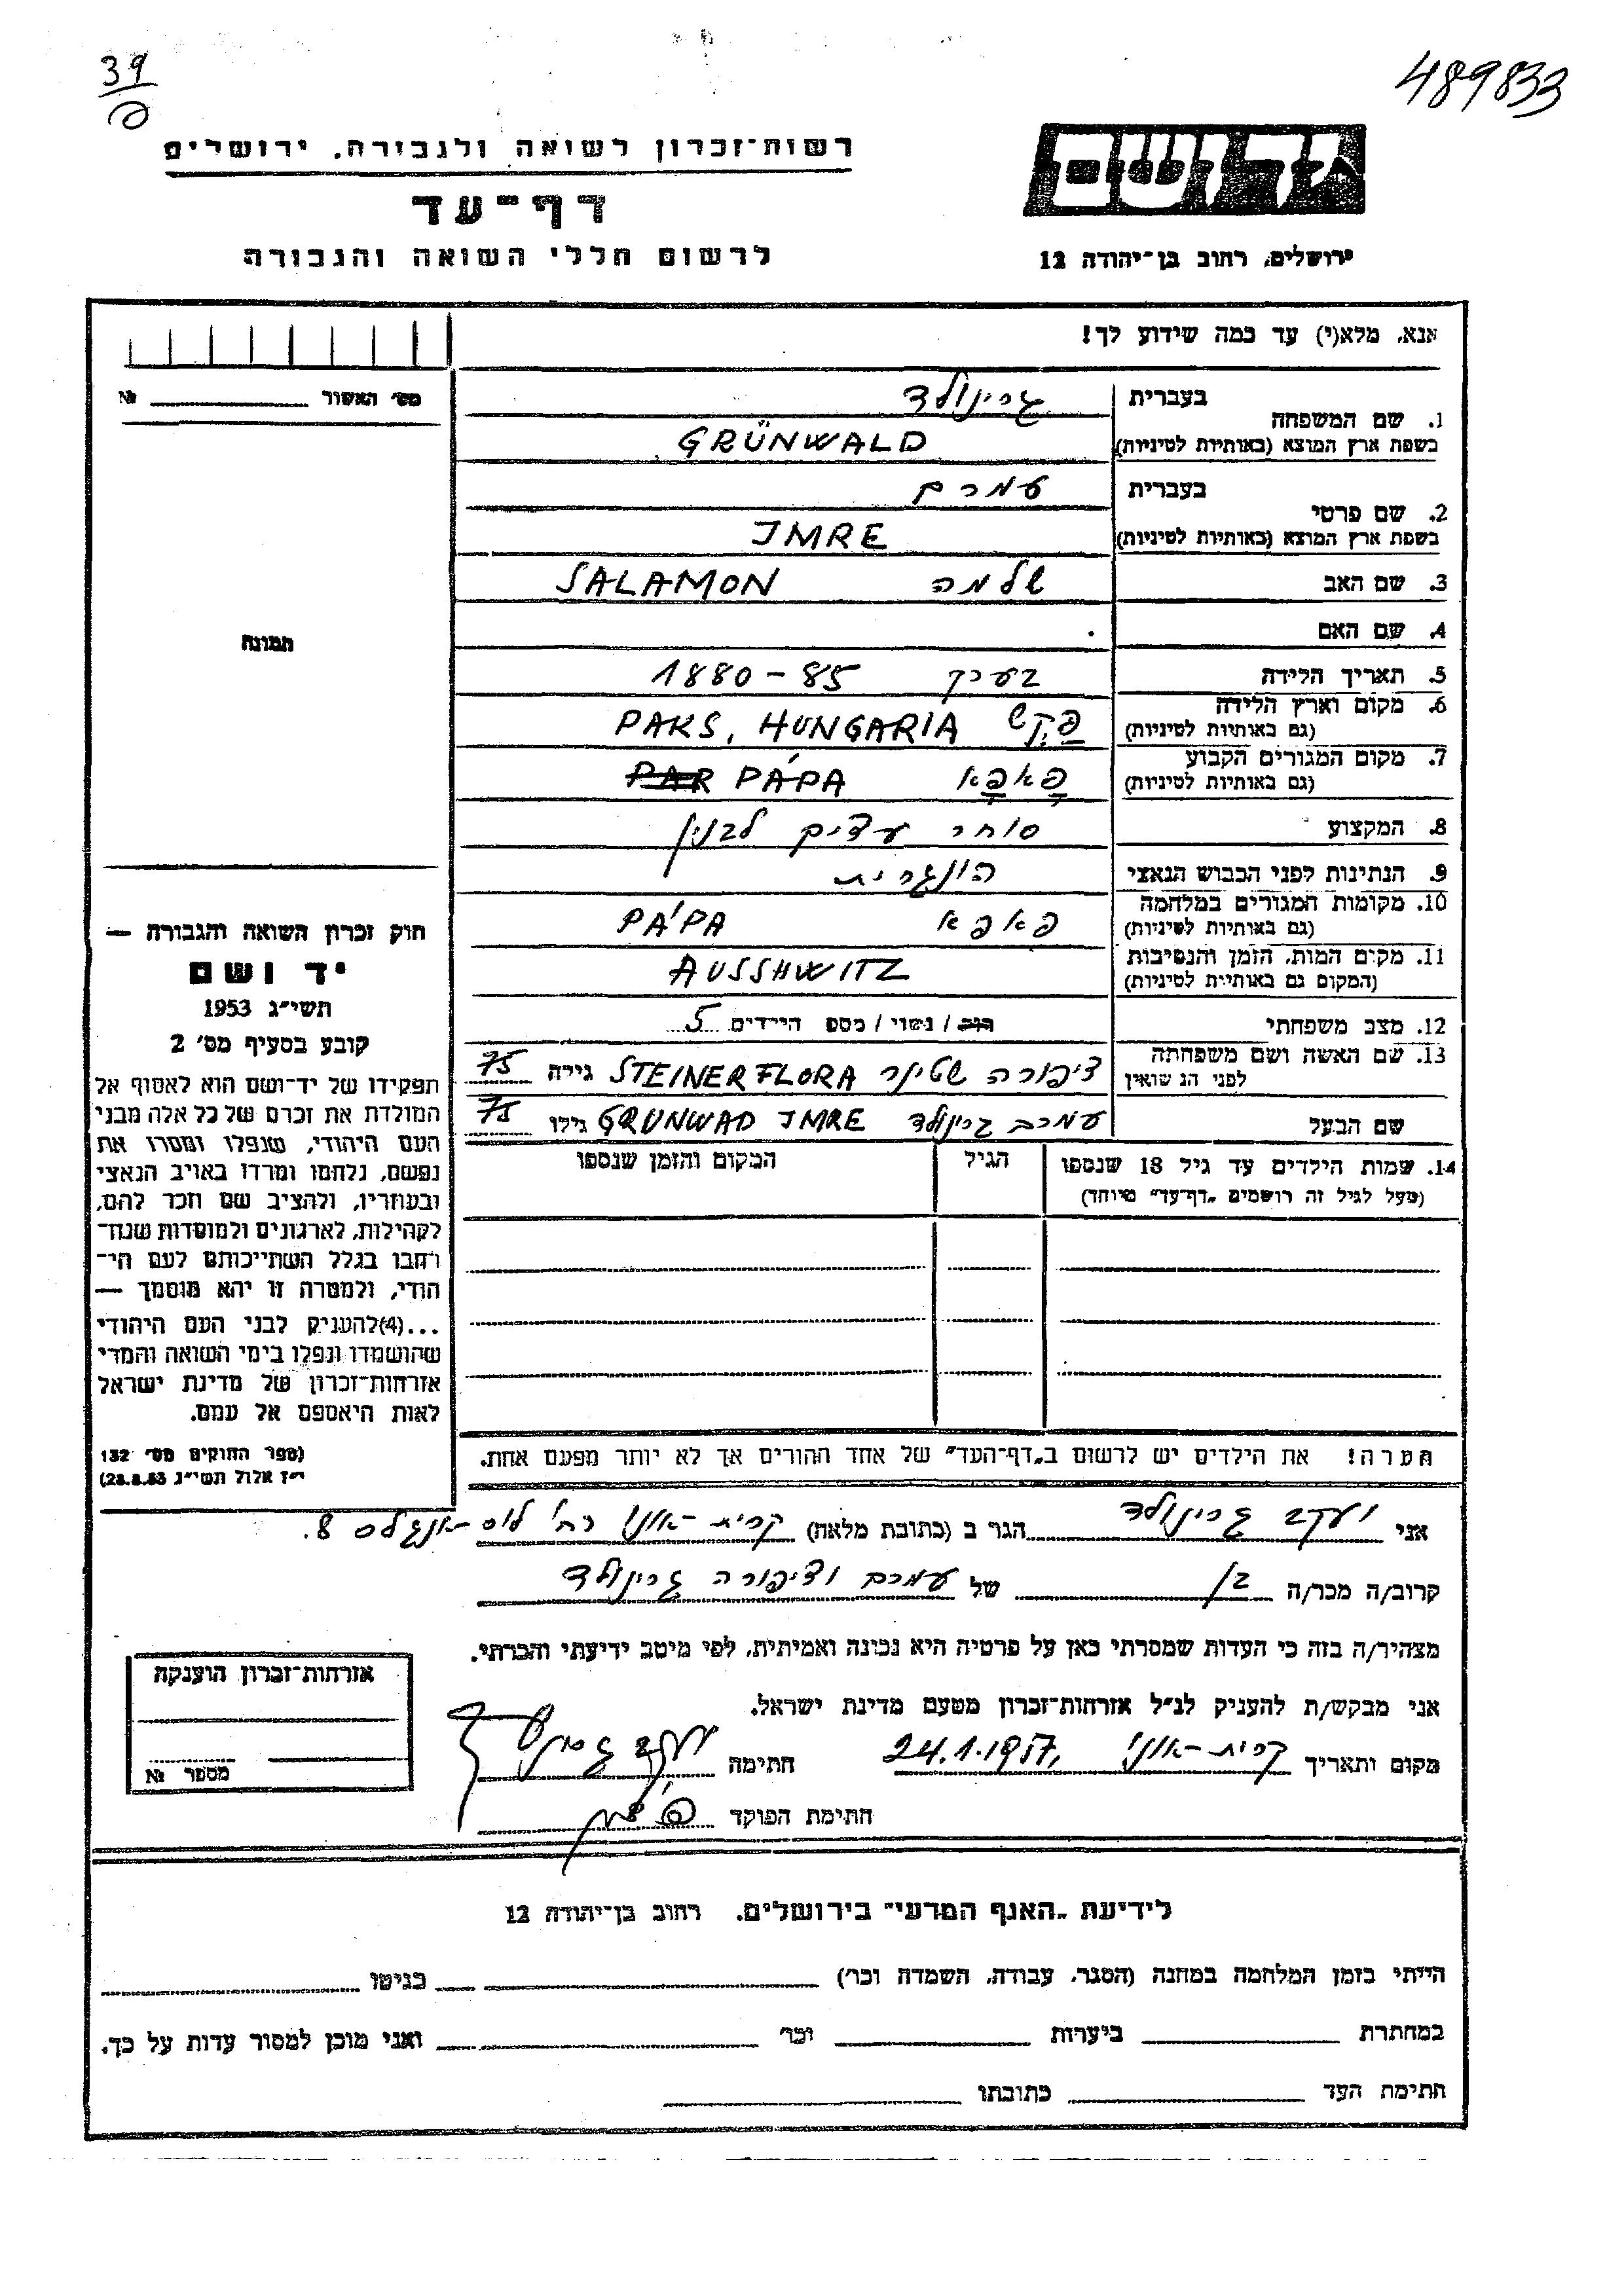 39
489833
רשות־זכרון לשואה ולגבורה. ירושלים
יד ושם
דף־עד
לרשום חללי השואה והגבורה
ירושלים, רחוב בן־יהודה 12
אנא, מלא(י) עד כמה שידוע לך!
מס׳ האשור № 
בעברית גרינולד
1. שם המשפחה
בשפת ארץ המוצא (באותיות לטיניות) GRÜNWALD
בעברית עמרם
2. שם פרטי
בשפת ארץ המוצא (באותיות לטיניות) IMRE
3. שם האב שלמה SALAMON
4. שם האם
תמונה
5. תאריך הלידה בערך 1880-85
6. מקום וארץ הלידה
(גם באותיות לטיניות) פקש PAKS, HUNGARIA
7. מקום המגורים הקבוע
(גם באותיות לטיניות) פאפא PAR PÁPA
8. המקצוע סוחר עצים לבנין
9. הנתינות לפני הכבוש הנאצי הונגרית
10. מקומות המגורים במלחמה
(גם באותיות לטיניות) פאפא PÁPA
11. מקום המות, הזמן והנסיבות
(המקום גם באותיות לטיניות) AUSSHWITZ
12. מצב משפחתי רוב/ נשוי / מספ הילדים 5
13. שם האשה ושם משפחתה
לפני הנשואין ציפורה שטינר STEINER FLORA גילה 75
שם הבעל עמרם גרינולד GRUNWAD IMRE גילו 75
14. שמות הילדים עד גיל 18 שנספו
(מעל לגיל זה רושמים „דף־עד״ מיוחד)
הגיל
המקום והזמן שנספו
חוק זכרון השואה והגבורה —
יד ושם
תשי״ג 1953
קובע בסעיף מס׳ 2
תפקידו של יד־ושם הוא לאסוף אל
המולדת את זכרם של כל אלה מבני
העם היהודי, שנפלו ומסרו את
נפשם, נלחמו ומרדו באויב הנאצי
ובעוזריו, ולהציב שם וזכר להם,
לקהילות, לארגונים ולמוסדות שנח־
רבו בגלל השתייכותם לעם הי־
הודי, ולמטרה זו יהא מוסמך —
...(4)להעניק לבני העם היהודי
שהושמדו ונפלו בימי השואה והמרי
אזרחות־זכרון של מדינת ישראל
לאות היאספם אל עמם.
(ספר החוקים מס׳ 132
י״ז אלול תשי״ג 28.8.53)
הערה! את הילדים יש לרשום ב„דף־העד״ של אחד ההורים אך לא יותר מפעם אחת.
אני יעקב גרינולד הגר ב (כתובת מלאה) קרית-אונו רח׳ לוס-אנגלס 8.
קרוב/ה מכר/ה בן של עמרם וציפורה גרינולד
מצהיר/ה בזה כי העדות שמסרתי כאן על פרטיה היא נכונה ואמיתית, לפי מיטב ידיעתי והכרתי.
אני מבקש/ת להעניק לנ״ל אזרחות־זכרון מטעם מדינת ישראל.
מקום ותאריך קרית-אונו, 24.1.1957 חתימה יעקב גרינולד
חתימת הפוקד
אזרחות־זכרון הוענקה
מספר №
לידיעת „האגף המדעי״ בירושלים. רחוב בן־יהודה 12
הייתי בזמן המלחמה במחנה (הסגר, עבודה, השמדה וכו׳) בגיטו
במחתרת ביערות וכו׳ ואני מוכן למסור עדות על כך.
חתימת העד כתובתו